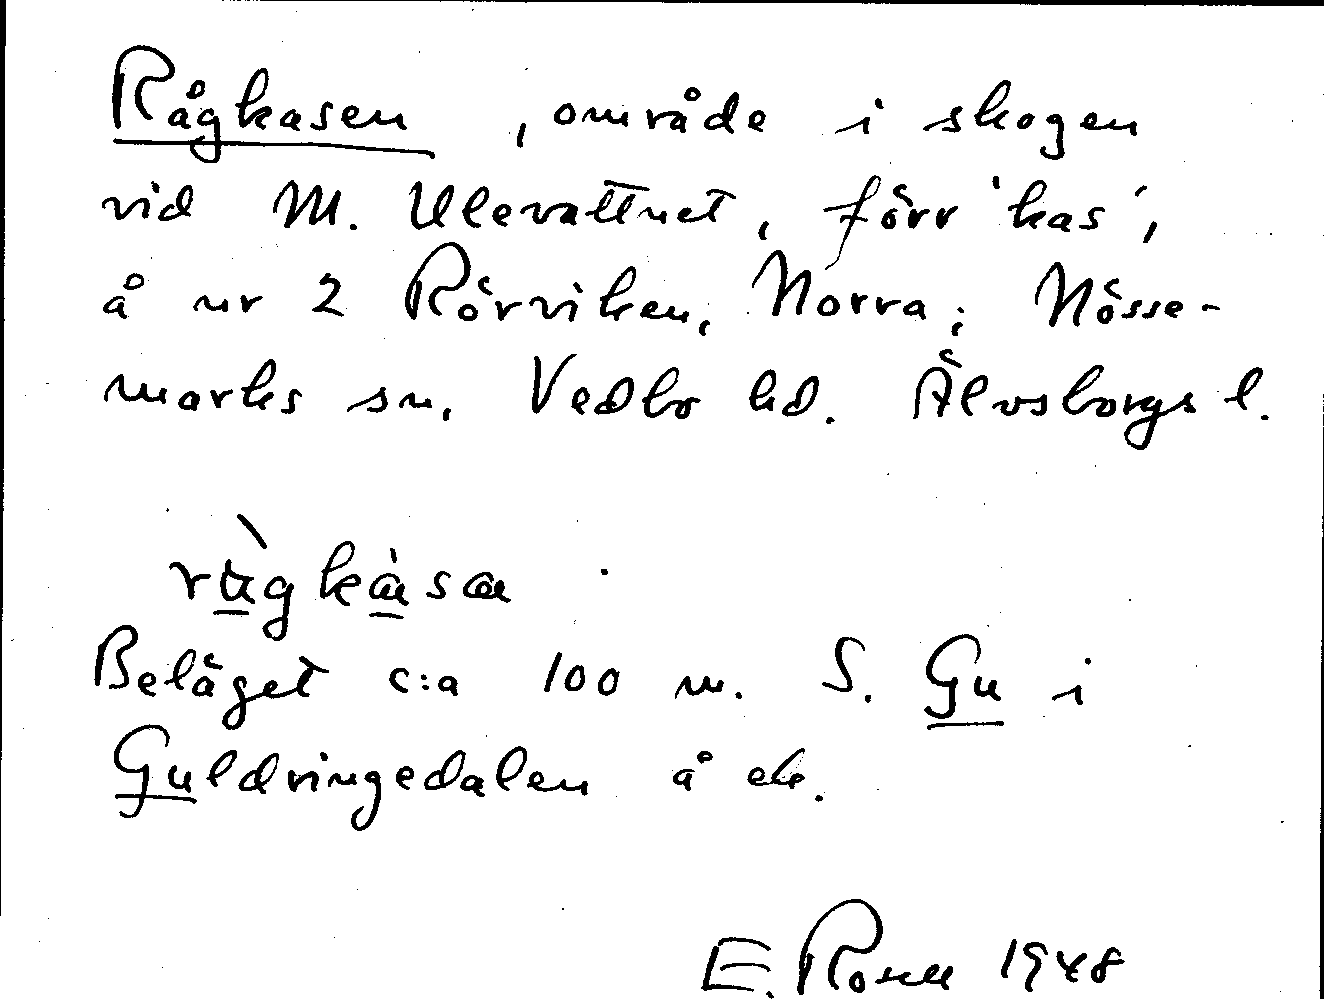 Rågkasen, område i skogen
vid M. Ulevattnet, förr 'kas',
å nr 2 Rörviken, Norra; Nösse-
marks sn. Vedbo hd. Älvsborgs l.
Beläget c:a 100 m. S. Gu i
Guldringedalen å ek.
E. 1948